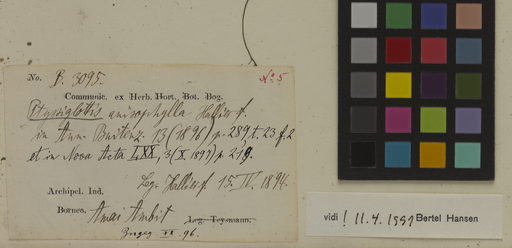 No. B. 3095.
No 5
Communic. ex Herb. Hort. Bot. Bog.
anisophylla Hallier f.
in Ann. Buitenz. 13 (1896) p. 289, t. 23 f. 2
et in Nova Acta LXX, 3 (X. 1897) p. 219.
leg. Hallier f. 15. IV. 1894.
Archipel. Ind.
Borneo. Amai Ambit
Leg. Teysmann.
96.
vidi ! 11.4.1991 Bertel Hansen